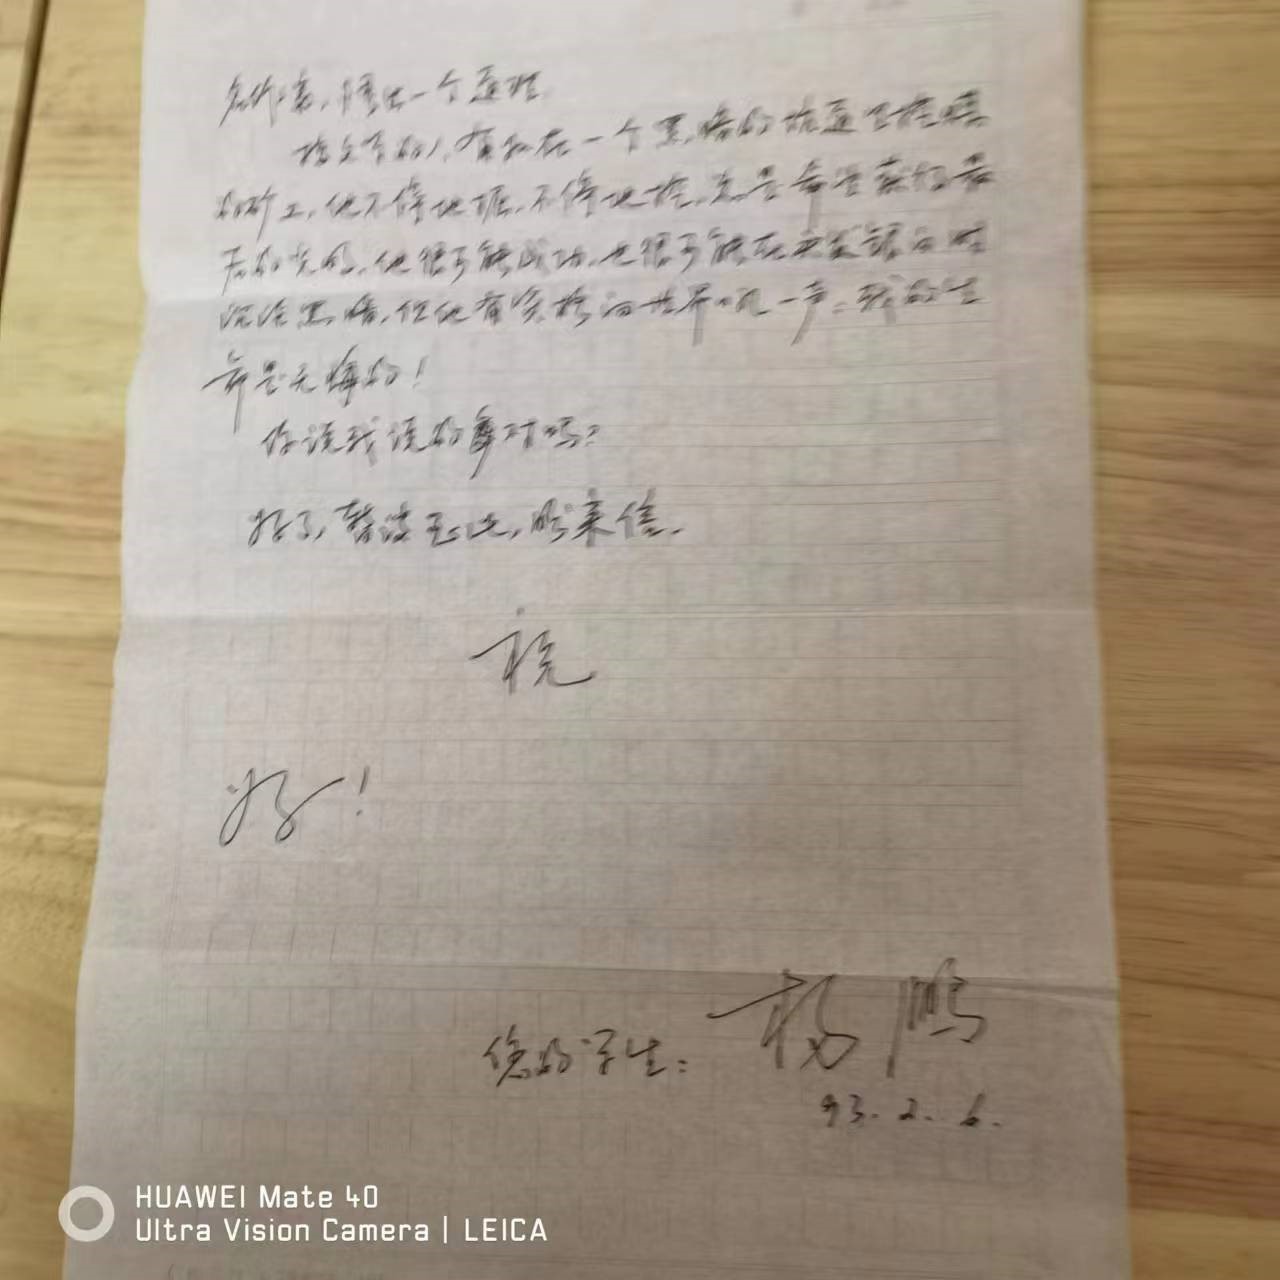 名作家，悟出一个道理。
搞文字的人，有如在一个黑暗的坑道里挖煤
的矿工，他不停地掘，不停地挖，总是希望获得最
后的光明，他很可能成功，也很可能在未发掘的时
沉沦黑暗，但他有资格向世界吼一声：我的生
命是无悔的！
你说我说的对吗？
好了，暂谈至此，盼来信。
祝
好！
您的学生：杨鹏
93.2.6.
HUAWEI Mate 40
Ultra Vision Camera | LEICA